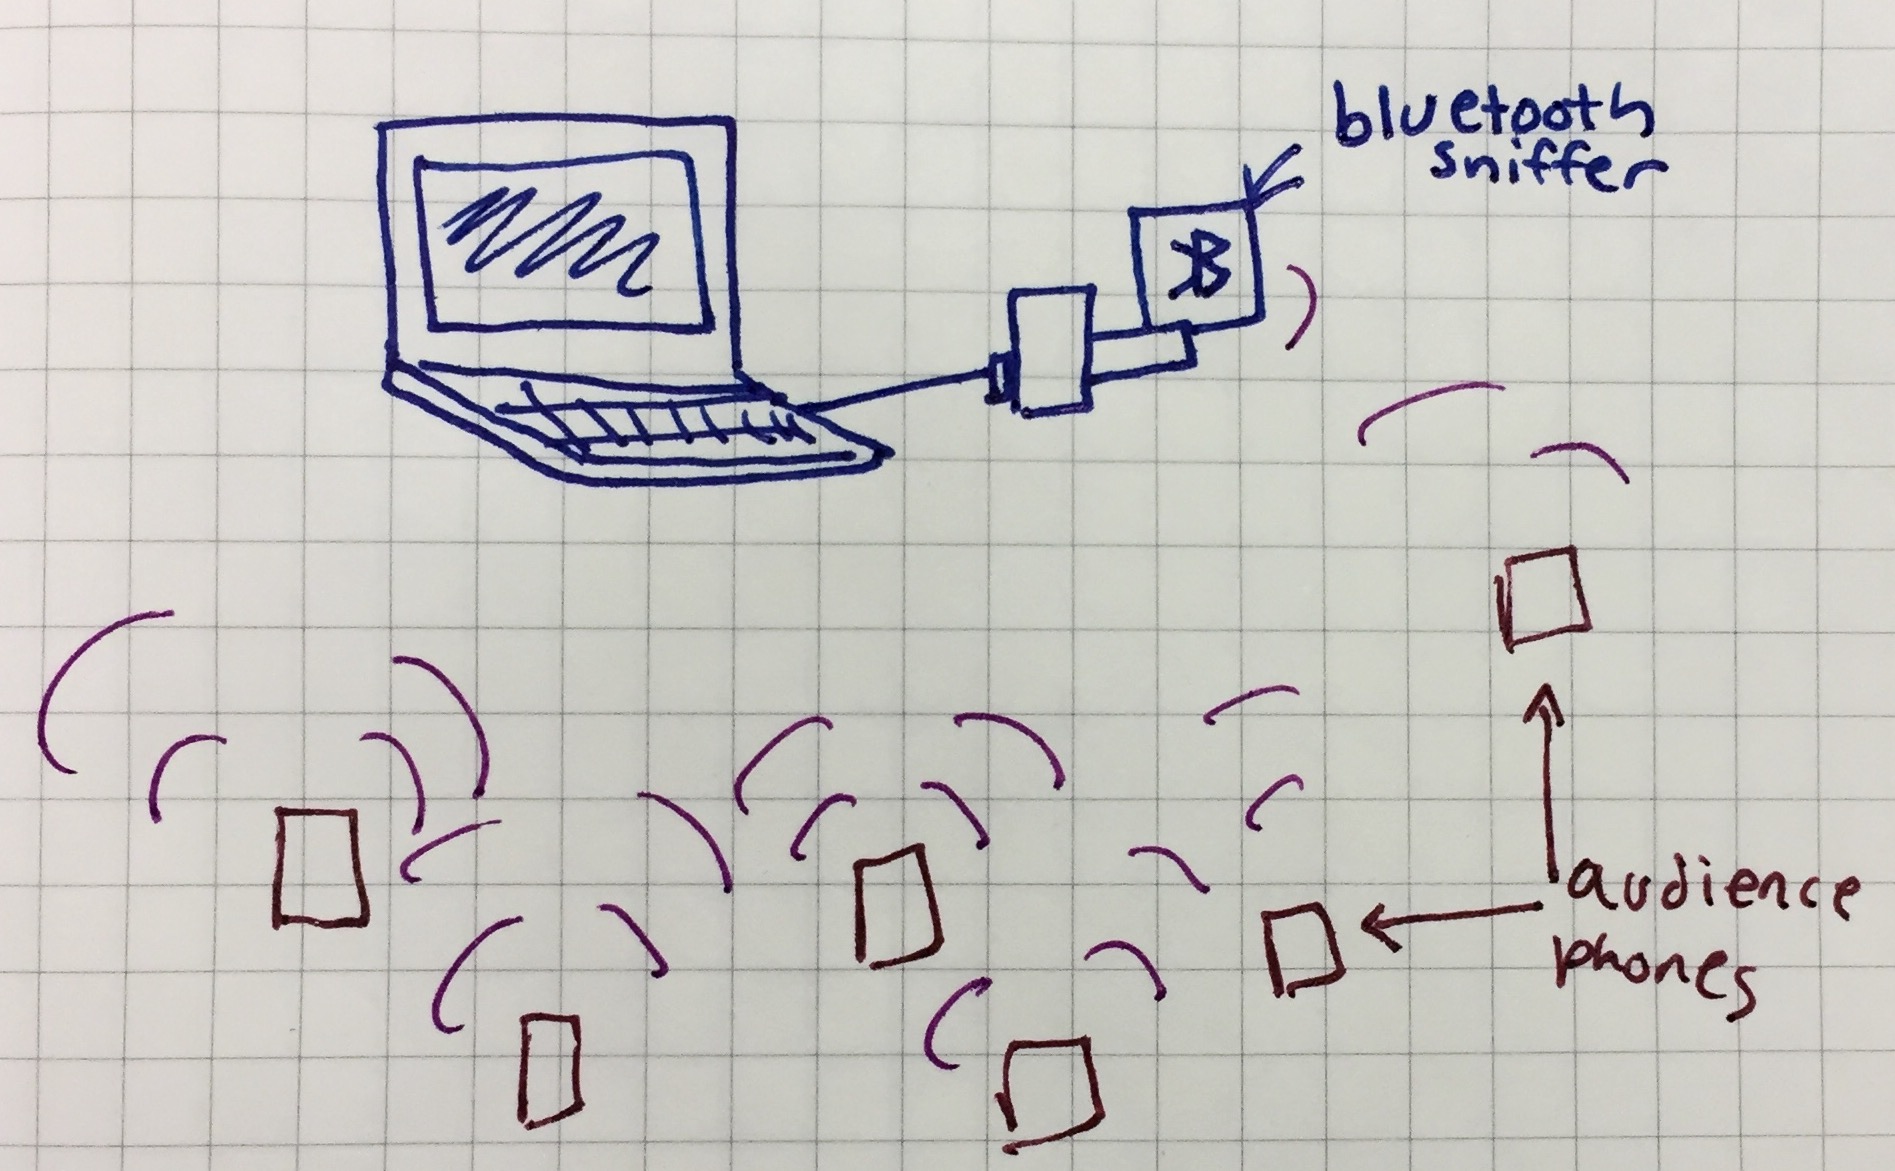 bluetooth
sniffer
audience
phones